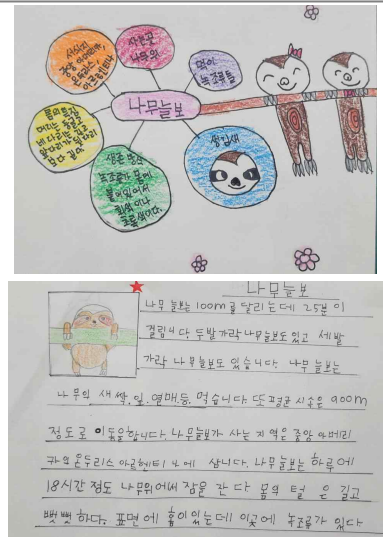 서식지
중앙 아메리카,
온두라스,
아르헨티나
사는곳
나무위
먹이
녹조류들
나무늘보
몸의 특징
머리는 둥글고
네 다리는 길고
앞다리가 뒷다리
보다 길어.
생존 방식
녹조류가 몸에
붙어있어서
회색이나
초록색이다.
생김새
나무늘보
나무늘보는 100m를 달리는데 25분이
걸립니다. 두발가락 나무늘보도 있고 세발
가락 나무늘보도 있습니다. 나무늘보는
나무의 새싹, 잎, 열매등, 먹습니다. 또 평균 시속은 900m
정도로 이동을합니다. 나무늘보가 사는 지역은 중앙 아메리
카 온두리스 아르헨티나 에 삽니다. 나무늘보는 하루에
18시간 정도 나무위에서 잠을 잔다 몸의 털 은 길고
뻣뻣하다. 표면에 홈이 있는데 이곳에 녹조류가 있다